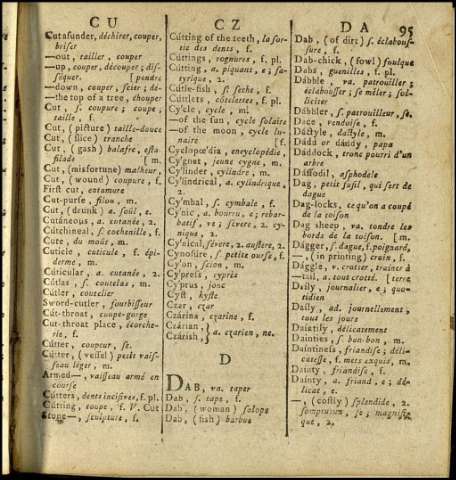 CU
CZ
DA
95
Cutasunder, déchirer, couper,
briser
—out, tailler, couper
—up, couper, découper; dis-
séquer. [pendre
—down, couper, scier; dé-
—the top of a tree, étouper
Cut, s. coupure; coupe;
taille, f.
Cut, (picture) taille-douce
Cut, (slice) tranche
Cut, (gash) balafre, esta-
filade [m.
Cut, (misfortune) malheur,
Cut, (wound) coupure, f.
First cut, entamure
Cut-purse, filou, m.
Cut, (drunk) a. soûl, e.
Cutáneous, a. cutanée, 2.
Cútchineal, s. cochenille, f.
Cute, du moût, m.
Cuticle, cuticule, f. épi-
derme, m.
Cuticular, a. cutanée, 2.
Cútlas, s. coutelas, m.
Cútler, coutelier
Sword-cutler, fourbisseur
Cút-throat, coupe-gorge
Cut-throat place, écorche-
rie, f.
Cútter, coupeur, se.
Cútter, (vessel) petit vais-
seau léger, m.
Armed—, vaisseau armé en
course
Cútters, dents incisives, f. pl.
Cútting, coupe, f. V. Cut
Stone—, sculpture, f.
Cútting of the teeth, la sor-
tie des dents, f.
Cúttings, rognures, f. pl.
Cútting, a. piquant, e; sa-
tyrique, 2.
Cúttle-fish, s. seche, f.
Cúttlets, côtelettes, f. pl.
Cy'cle, cycle, m.
—of the sun, cycle solaire
—of the moon, cycle lu-
naire f.
Cyclopœ'dia, encyclopédie,
Cy'gnet, jeune cygne, m.
Cy'linder, cylindre, m.
Cylíndrical, a. cylindrique,
2.
Cy'mbal, s. cymbale, f.
Cy'nic, a. bourru, e; rebar-
batif, ve; sévere, 2. cy-
nique, 2.
Cy'nical, sévere, 2. austere, 2.
Cynosúre, s. petite ourse, f.
Cy'on, scion, m.
Cy'press, cyprès
Cyprus, jonc
Cyst, kyste
Czar, czar
Czárina, czarine, f.
Czárian, } a. czarien, ne.
Czárish, }
D
DAB, va. taper
Dab, s. tape, f.
Dab, (woman) salope
Dab, (fish) barbue
Dab, (of dirt) s. éclabous-
sure, f.
Dab-chick, (fowl) foulque
Dabs, guenilles, f. pl.
Dábble, va. patrouiller;
éclabousser; se mêler; sol-
liciter
Dábbler, s. patrouilleur, se.
Dace, vendoise, f.
Dáctyle, dactyle, m.
Dádá or dándy, papa
Dáddock, tronc pourri d'un
arbre
Dáffodil, asphodele
Dag, petit fusil, qui sert de
dague
Dag-locks, ce qu'on a coupé
de la toison
Dag sheep, va. tondre les
bords de la toison. [m.
Dágger, s. dague, f. poignard,
—, (in printing) croix, f.
Dággle, v. crotter, trainer à
—tail, a. tout crotté. [terre
Daily, journalier, e; quo-
tidien
Daily, ad. journellement,
tous les jours
Daintily, délicatement
Dainties, s. bon-bon, m.
Daintiness, friandise; déli-
catesse, f. mets exquis, m.
Dainty, friandise, f.
Dainty, a. friand, e; dé-
licat, e.
—, (costly) splendide, 2.
somptueux, se; magnifi-
que, 2.